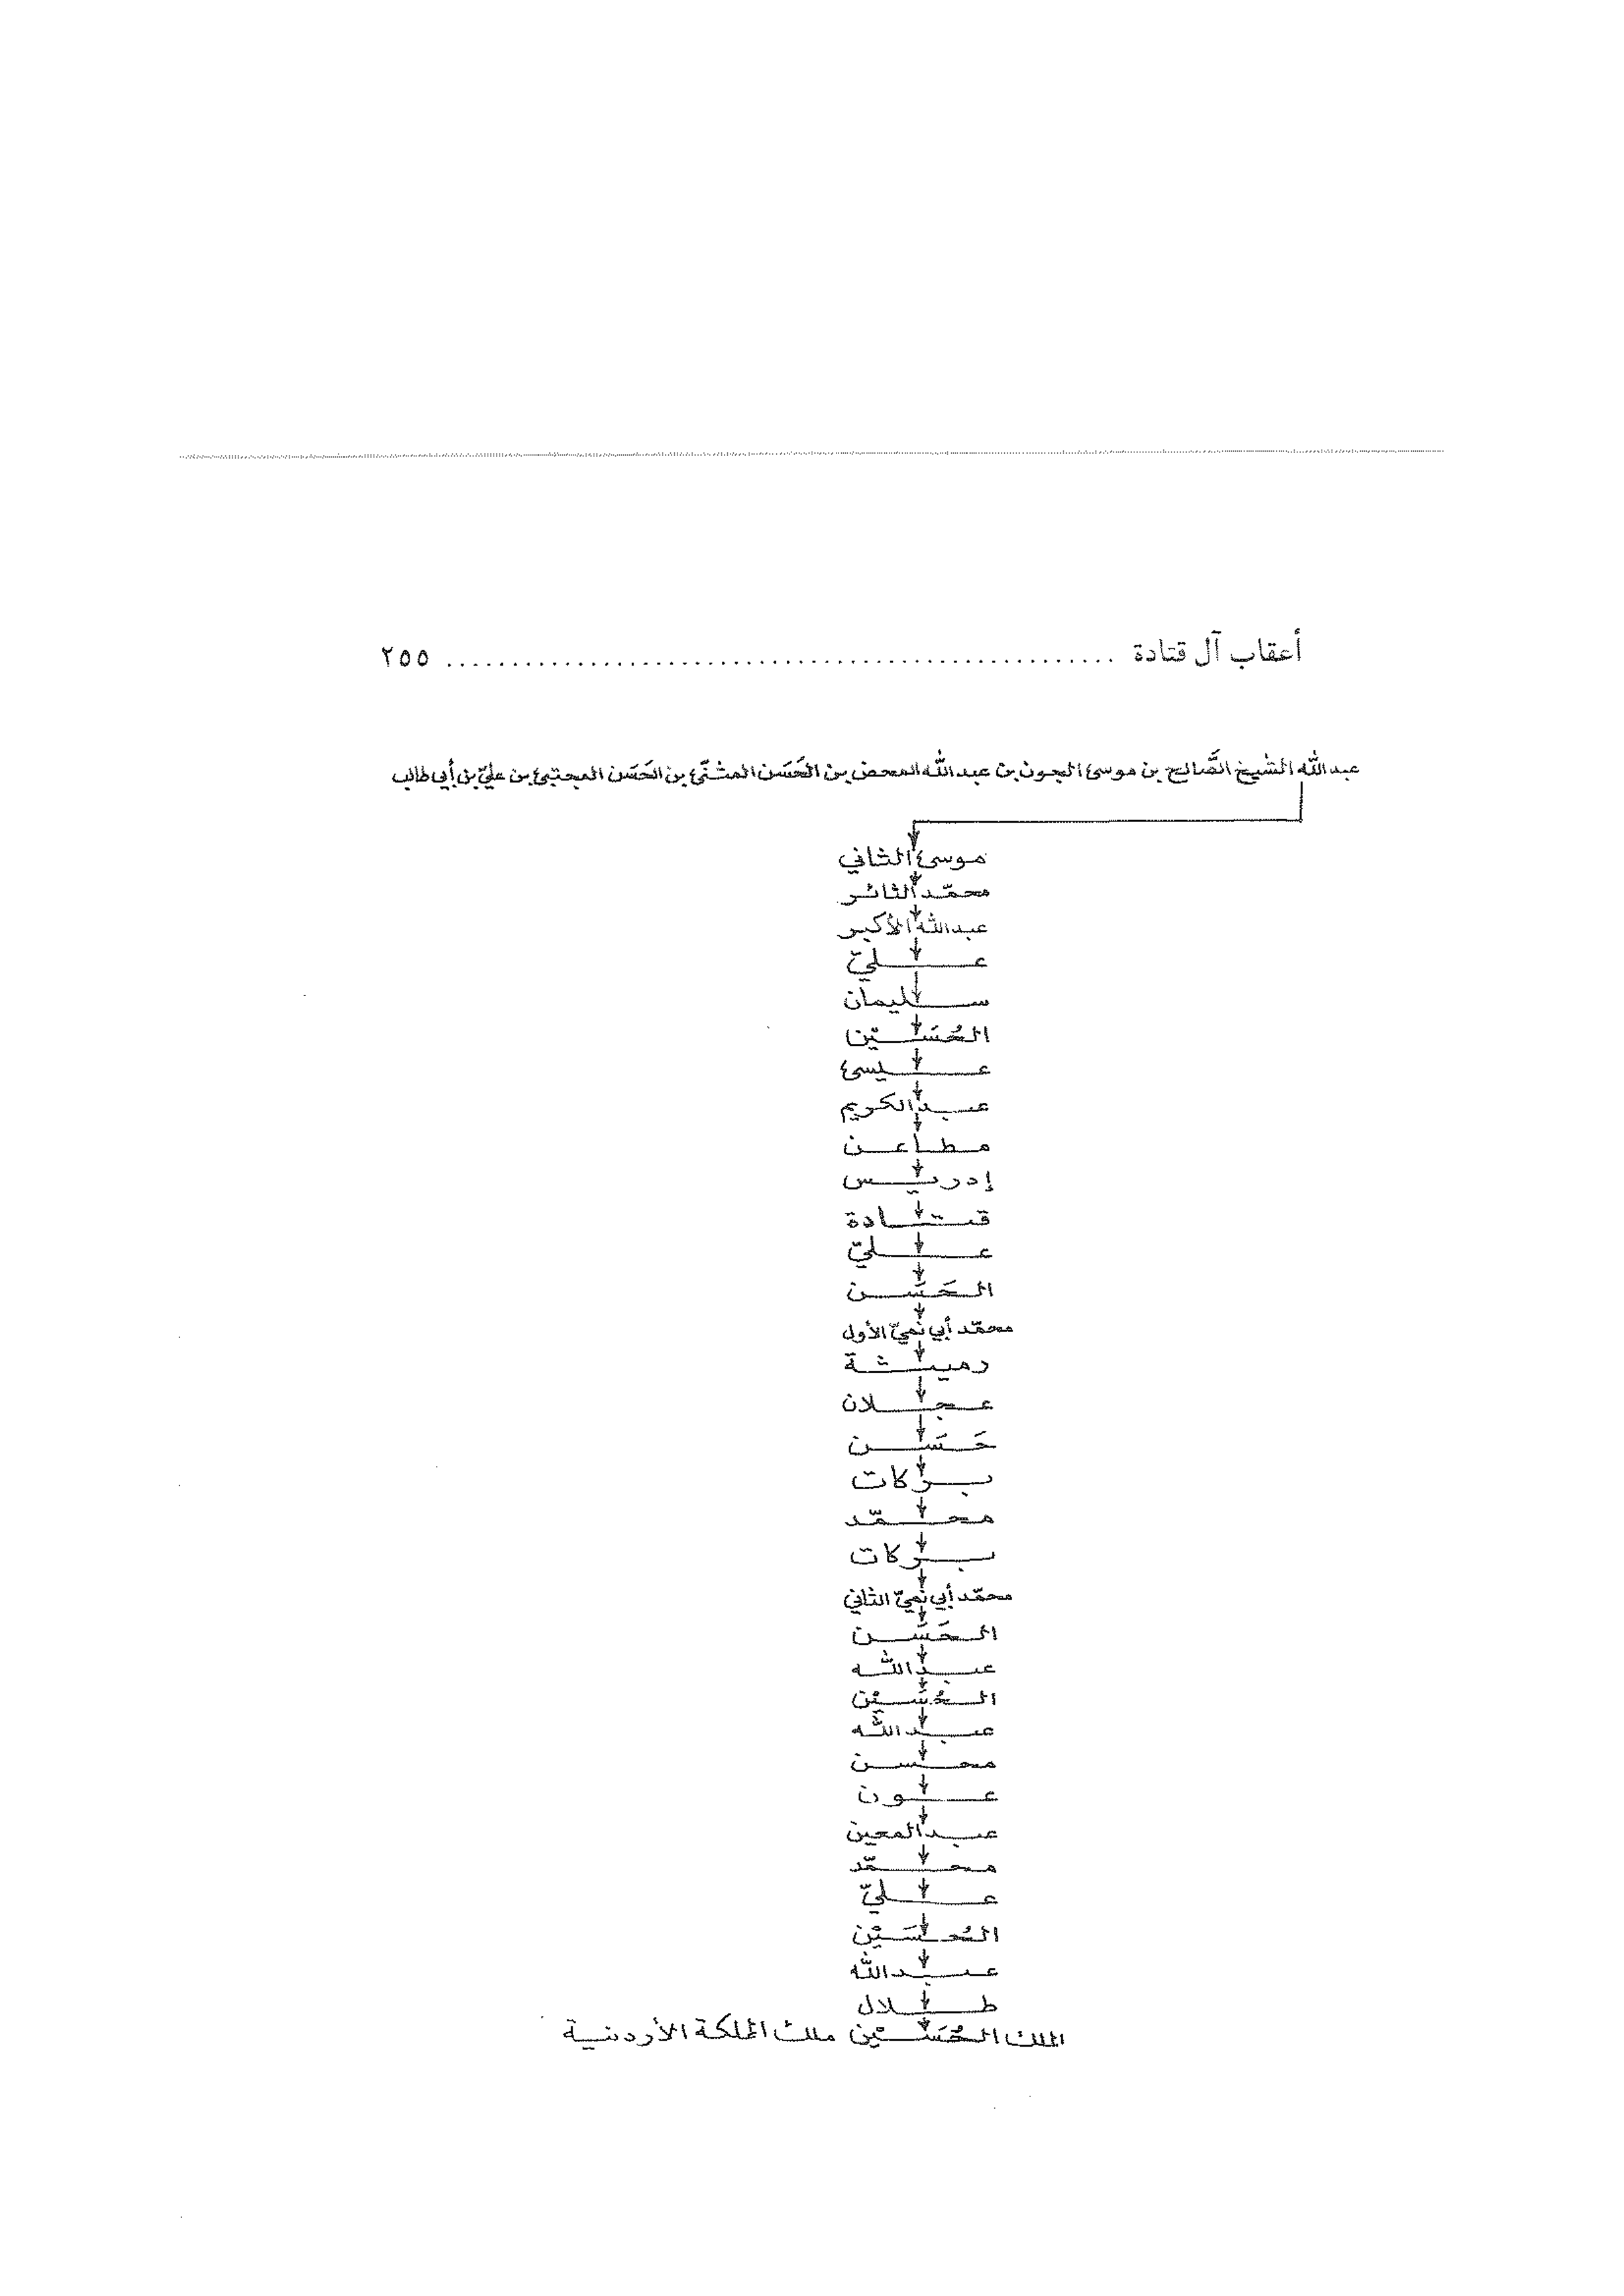 أعقاب آل قتادة ........................................................ ٢٥٥
عبدالله الشيخ الصَّالح بن موسىٰ الجون بن عبدالله المحض بن الحَسَن المثنّىٰ بن الحَسَن المجتبىٰ بن عليّ بن أبي طالب
موسىٰ الثاني
محمّد الثائر
عبدالله الأكبر
عليّ
سليمان
الحُسَيْن
عيسىٰ
عبدالكريم
مطاعن
إدريس
قتادة
عليّ
الحَسَن
محمّد أبي نميّ الأول
رميثة
عجلان
حَسَن
بركات
محمّد
بركات
محمّد أبي نميّ الثاني
الحَسَن
عبدالله
الحُسَيْن
عبدالله
محسن
عون
عبدالمعين
محمّد
عليّ
الحُسَيْن
عبدالله
طلال
الملك الحُسَيْن ملك المملكة الأردنية